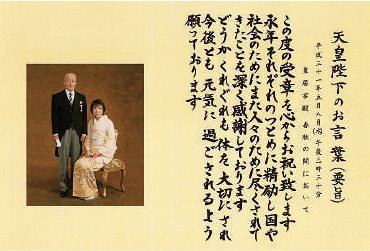 天皇陛下のお言葉(要旨)
平成二十一年五月八日(金)午後三時二十分
皇居宮殿 春秋の間において
この度の受章を心からお祝い致します
永年それぞれのつとめに精励し国や
社会のためにまた人々のために尽くされて
きたことを深く感謝しております
どうかくれぐれも体を大切にされ
今後とも元気に過ごされるよう
願っております